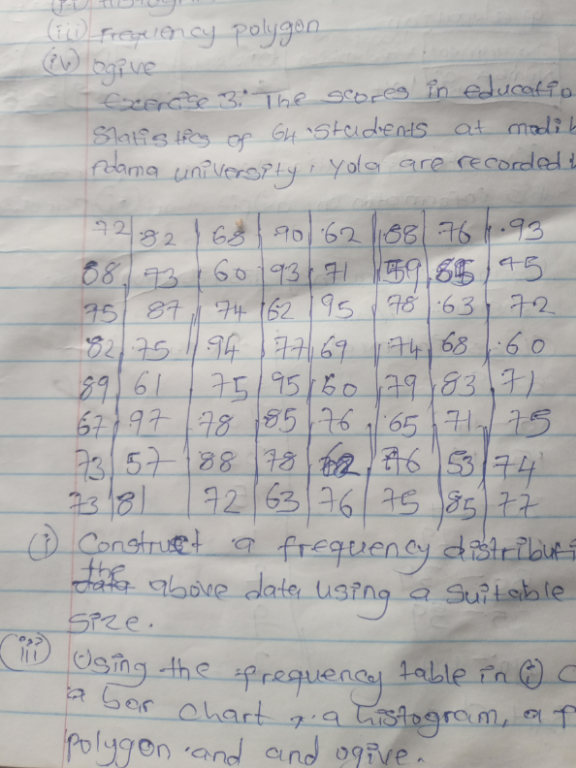 (iii) Frequency polygon
(iv) ogive
Exercise 3: The scores in educatio
Statistics of 64 students at modib
Adama university, Yola are recorded
72 82 68 90 62 88 76 93
68 73 60 93 71 59 85 75
75 87 74 62 95 78 63 72
82 75 94 77 69 74 68 60
89 61 75 95 60 79 83 71
67 97 78 85 76 65 71 75
73 57 88 78 62 76 53 74
73 81 72 63 76 75 85 77
(i) Construct a frequency distributi
the
data above data using a suitable
size.
(iii) Using the frequency table in (i) C
a bar chart, a histogram, a f
polygon and and ogive.